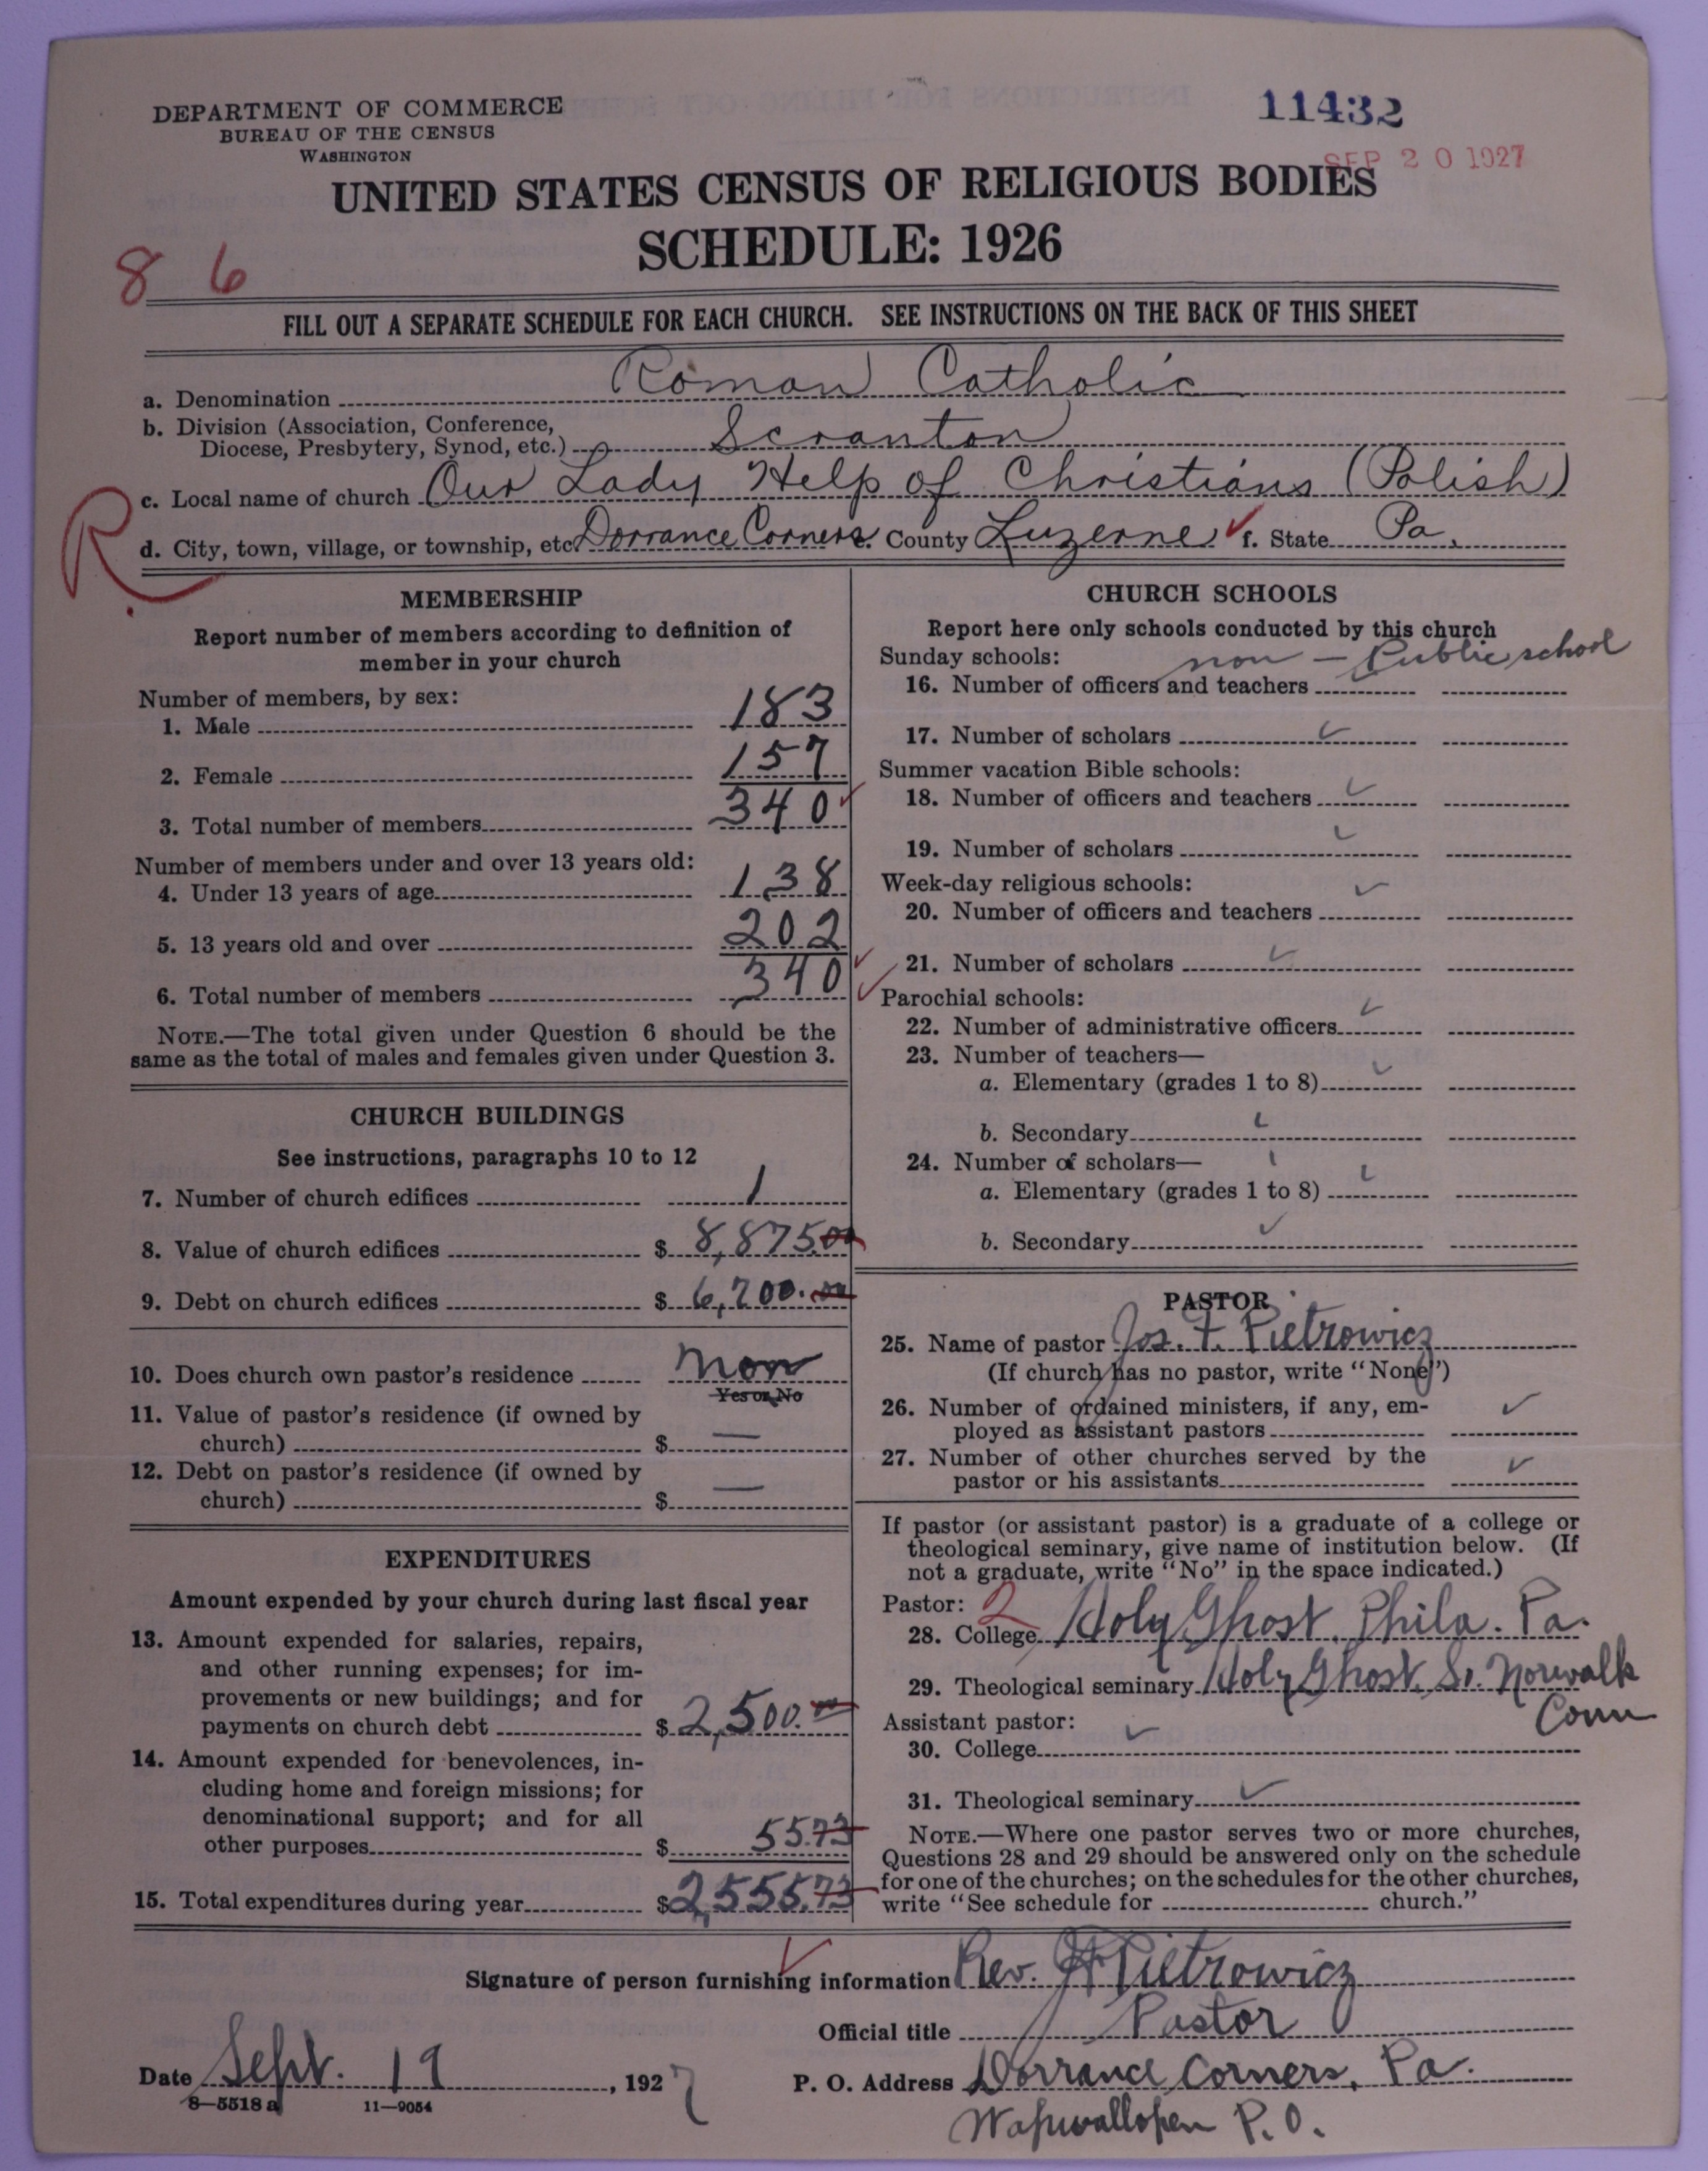 DEPARTMENT OF COMMERCE
BUREAU OF THE CENSUS
WASHINGTON
11432
SEP 20 1927
UNITED STATES CENSUS OF RELIGIOUS BODIES
SCHEDULE: 1926
8 6
FILL OUT A SEPARATE SCHEDULE FOR EACH CHURCH. SEE INSTRUCTIONS ON THE BACK OF THIS SHEET
a. Denomination Roman Catholic
b. Division (Association, Conference,
Diocese, Presbytery, Synod, etc.) Scranton
c. Local name of church Our Lady Help of Christians (Polish)
R
d. City, town, village, or township, etc. Dorrance Corners e. County Luzerne ✓ f. State Pa.
MEMBERSHIP
Report number of members according to definition of
member in your church
Number of members, by sex:
1. Male 183
2. Female 157
3. Total number of members 340 ✓
Number of members under and over 13 years old:
4. Under 13 years of age 138
5. 13 years old and over 202
6. Total number of members 340 ✓ ✓
NOTE.—The total given under Question 6 should be the
same as the total of males and females given under Question 3.
CHURCH BUILDINGS
See instructions, paragraphs 10 to 12
7. Number of church edifices 1
8. Value of church edifices $ 8,875.00
9. Debt on church edifices $ 6,700.00
10. Does church own pastor's residence non
Yes or No
11. Value of pastor's residence (if owned by
church) $ —
12. Debt on pastor's residence (if owned by
church) $ —
EXPENDITURES
Amount expended by your church during last fiscal year
13. Amount expended for salaries, repairs,
and other running expenses; for im-
provements or new buildings; and for
payments on church debt $ 2,500.00
14. Amount expended for benevolences, in-
cluding home and foreign missions; for
denominational support; and for all
other purposes $ 55.73
15. Total expenditures during year $ 2,555.73
CHURCH SCHOOLS
Report here only schools conducted by this church
Sunday schools: non — Public school
16. Number of officers and teachers
17. Number of scholars ✓
Summer vacation Bible schools:
18. Number of officers and teachers ✓
19. Number of scholars ✓
Week-day religious schools:
20. Number of officers and teachers ✓
21. Number of scholars ✓
Parochial schools:
22. Number of administrative officers ✓
23. Number of teachers—
a. Elementary (grades 1 to 8) ✓
b. Secondary ✓
24. Number of scholars—
a. Elementary (grades 1 to 8) ✓
b. Secondary ✓
PASTOR
25. Name of pastor Jos. F. Pietrowicz
(If church has no pastor, write "None")
26. Number of ordained ministers, if any, em-
ployed as assistant pastors ✓
27. Number of other churches served by the
pastor or his assistants ✓
If pastor (or assistant pastor) is a graduate of a college or
theological seminary, give name of institution below. (If
not a graduate, write "No" in the space indicated.)
Pastor: 2
28. College Holy Ghost. Phila. Pa.
29. Theological seminary Holy Ghost. So. Norwalk
Conn
Assistant pastor:
30. College ✓
31. Theological seminary ✓
NOTE.—Where one pastor serves two or more churches,
Questions 28 and 29 should be answered only on the schedule
for one of the churches; on the schedules for the other churches,
write "See schedule for church."
Signature of person furnishing information Rev. JF Pietrowicz
Official title Pastor
Date Sept. 19, 1927
P. O. Address Dorrance Corners, Pa.
Wapwallopen P.O.
8—5518 a 11—9054